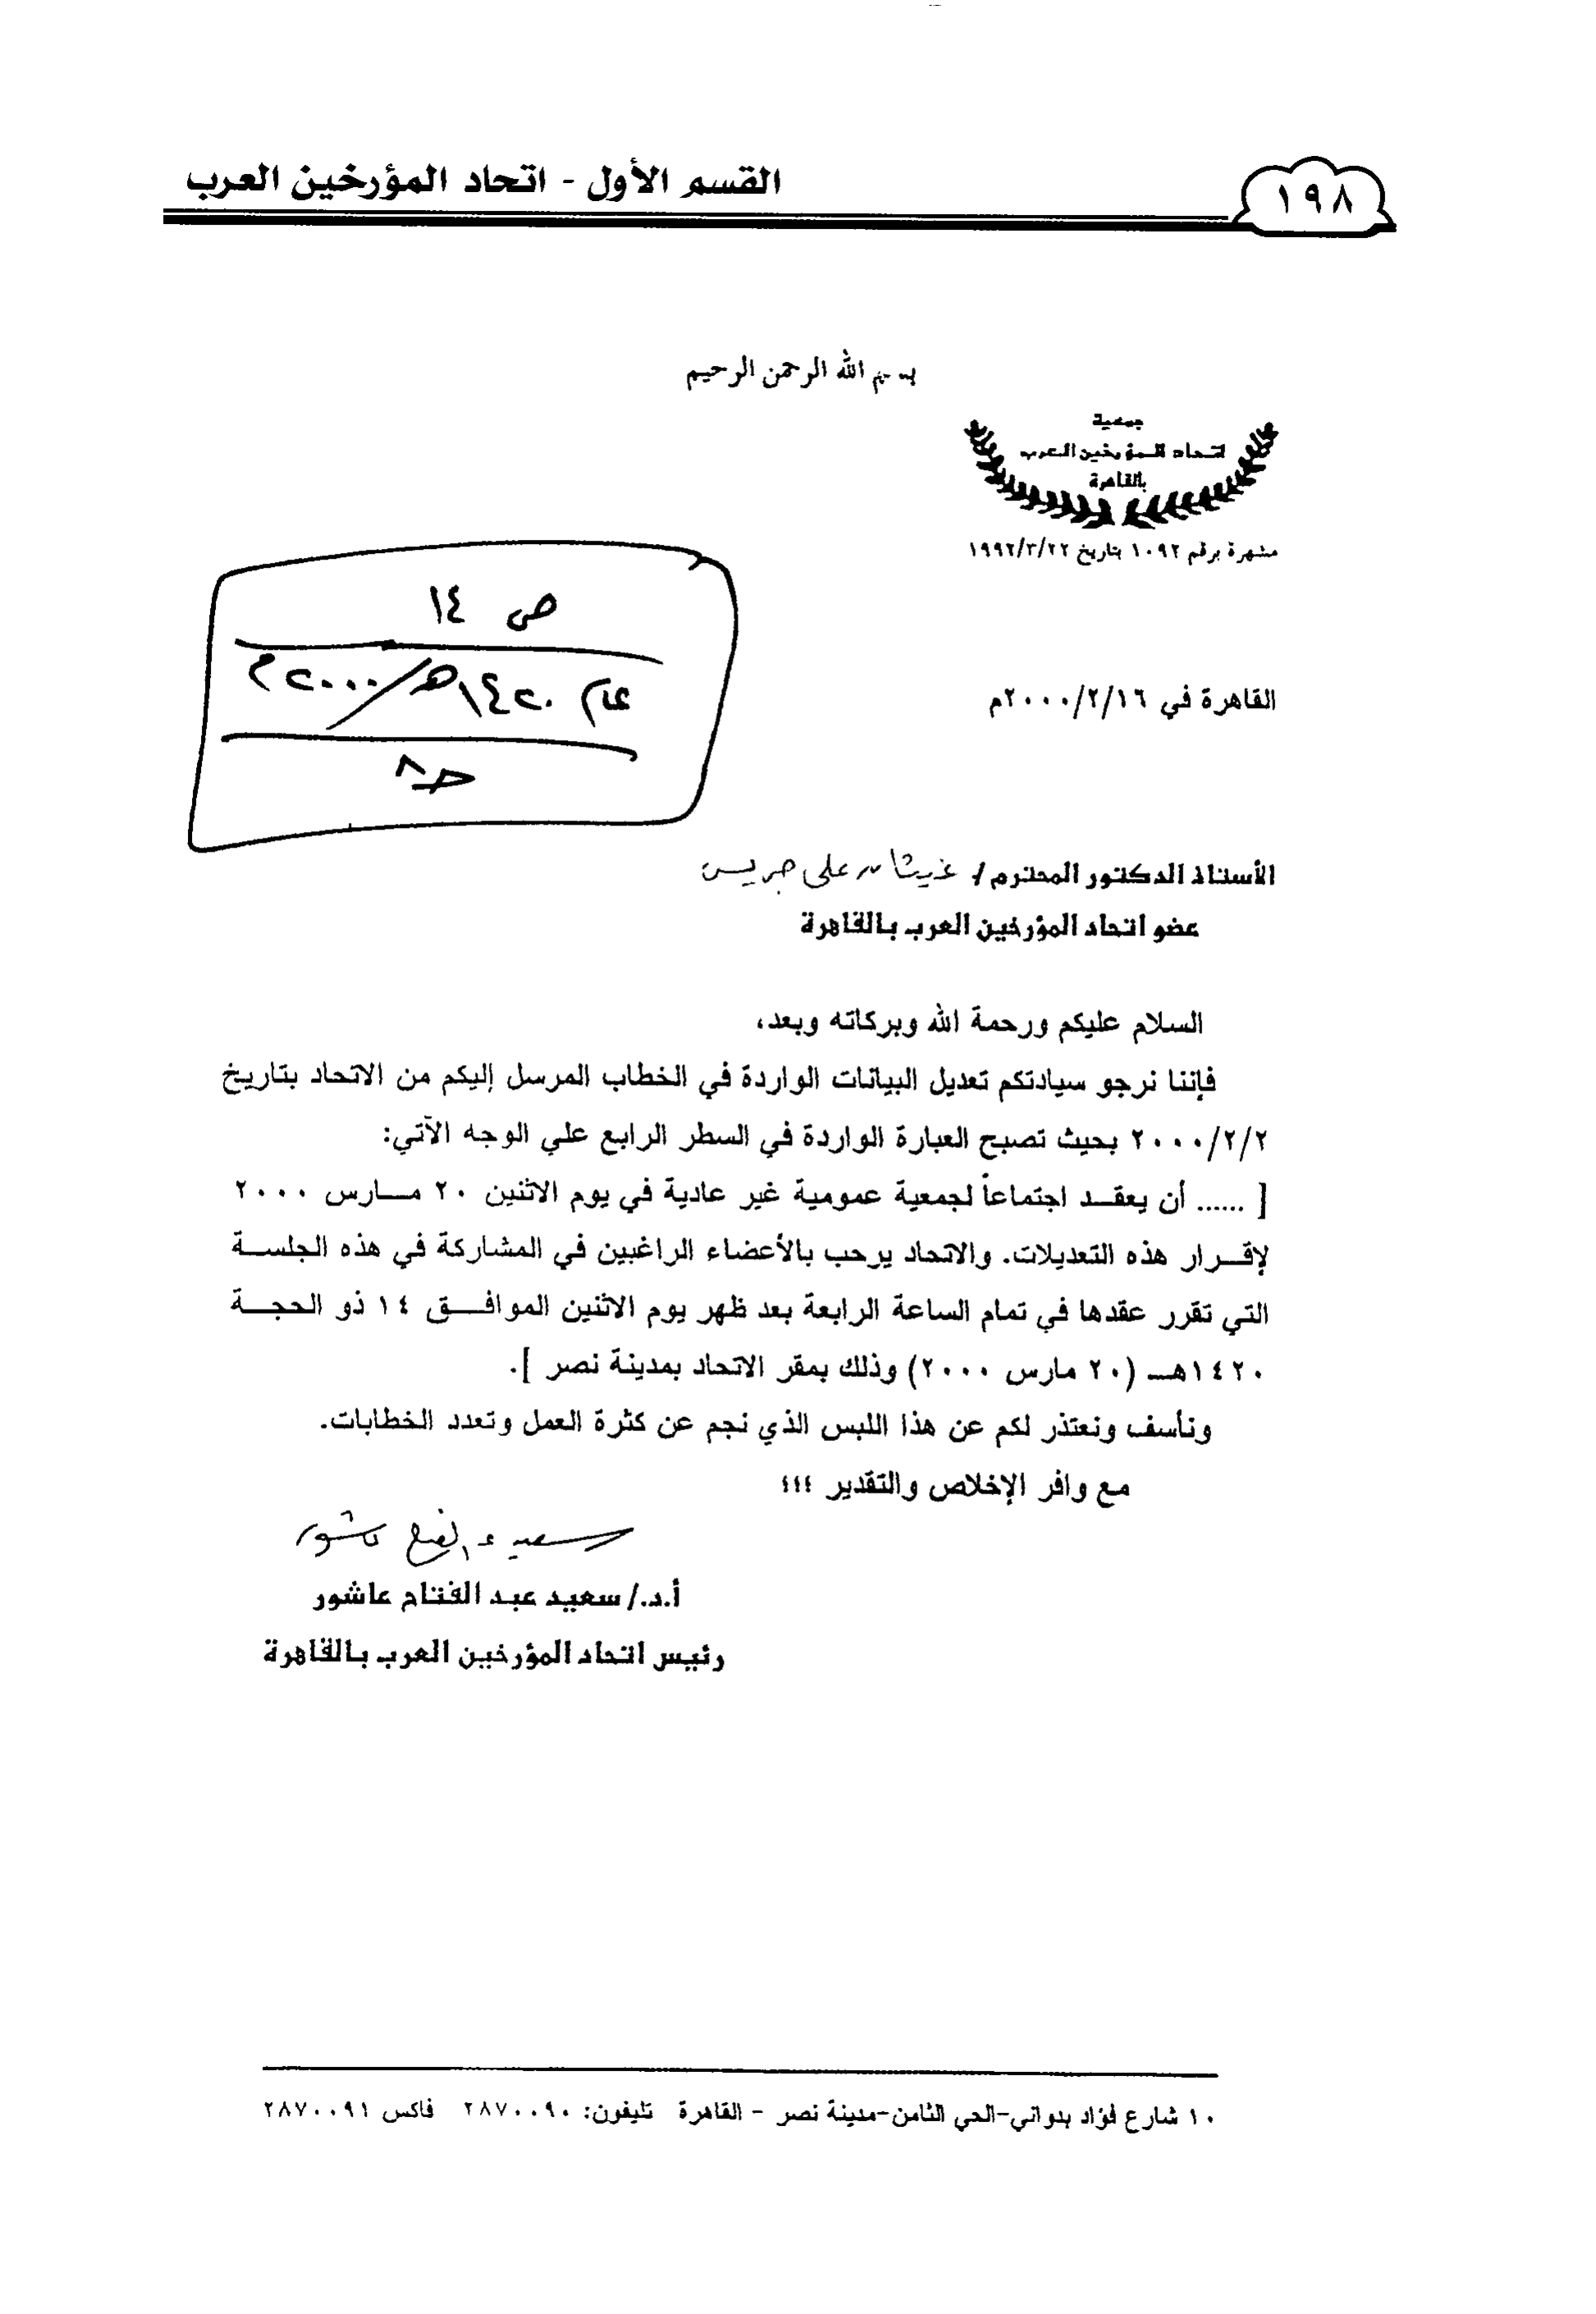 القسم الأول - اتحاد المؤرخين العرب
١٩٨
بسم الله الرحمن الرحيم
جمعية
اتحاد المؤرخين العرب
بالقاهرة
مشهرة برقم ١٠٩٢ بتاريخ ١٩٩٢/٣/٢٢
ص ١٤
عام ١٤٢٠هـ/٢٠٠٠م
حـ٨
القاهرة في ٢٠٠٠/٢/١٦م
الأستاذ الدكتور المحترم / غيثان علي جريس
عضو اتحاد المؤرخين العرب بالقاهرة
السلام عليكم ورحمة الله وبركاته وبعد،
فإننا نرجو سيادتكم تعديل البيانات الواردة في الخطاب المرسل إليكم من الاتحاد بتاريخ
٢٠٠٠/٢/٢ بحيث تصبح العبارة الواردة في السطر الرابع علي الوجه الآتي:
[ ...... أن يعقـد اجتماعاً لجمعية عمومية غير عادية في يوم الاثنين ٢٠ مـارس ٢٠٠٠
لإقـرار هذه التعديلات. والاتحاد يرحب بالأعضاء الراغبين في المشاركة في هذه الجلسـة
التي تقرر عقدها في تمام الساعة الرابعة بعد ظهر يوم الاثنين الموافـق ١٤ ذو الحجـة
١٤٢٠هـ (٢٠ مارس ٢٠٠٠) وذلك بمقر الاتحاد بمدينة نصر ].
ونأسف ونعتذر لكم عن هذا اللبس الذي نجم عن كثرة العمل وتعدد الخطابات.
مع وافر الإخلاص والتقدير ؛؛؛
سعيد عبد الفتاح عاشور
أ.د./ سعيد عبد الفتاح عاشور
رئيس اتحاد المؤرخين العرب بالقاهرة
١٠ شارع فؤاد بدواني-الحي الثامن-مدينة نصر - القاهرة تليفون: ٢٨٧٠٠٩٠ فاكس ٢٨٧٠٠٩١